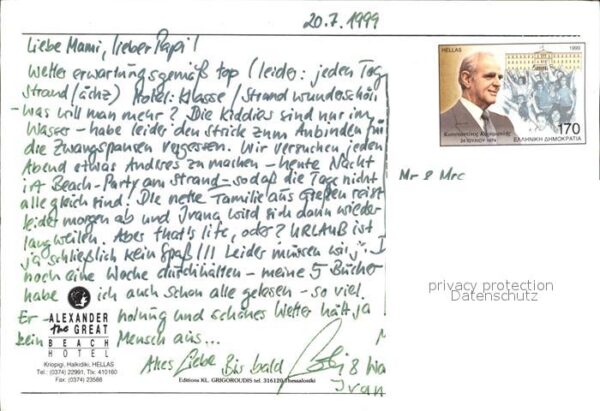 20.7.1999
Liebe Mami, lieber Papi!
Wetter erwartungsgemäß top (leider: jeden Tag
Strand/ächz) Hotel: Klasse / Strand wunderschön
- was will man mehr? Die Kiddies sind nur im
Wasser - habe leider den Strick zum Anbinden für
die Zwangspausen vergessen. Wir versuchen jeden
Abend etwas Anderes zu machen - heute Nacht
ist Beach-Party am Strand - sodaß die Tage nicht
alle gleich sind! Die nette Familie aus Gießen reist
leider morgen ab und Ivana wird sich dann wieder
langweilen. Aber that's life, oder? URLAUB ist
ja schließlich kein Spaß!!! Leider müssen wir
noch eine Woche durchhalten - meine 5 Bücher
habe ich auch schon alle gelesen - so viel
Er-holung und schönes Wetter hält ja
kein Mensch aus...
Alles Liebe Bis bald
&
Ivan
HELLAS
1999
Κωνσταντίνος Καραμανλής
24 ΙΟΥΛΙΟΥ 1974
170
ΕΛΛΗΝΙΚΗ ΔΗΜΟΚΡΑΤΙΑ
Mr & Mrc
privacy protection
Datenschutz
ALEXANDER
the GREAT
BEACH
HOTEL
Kriopigi, Halkidiki, HELLAS
Tel.: (0374) 22991, Tlx: 410160
Fax: (0374) 23568
Editions KL. GRIGOROUDIS tel. 316120 Thessaloniki